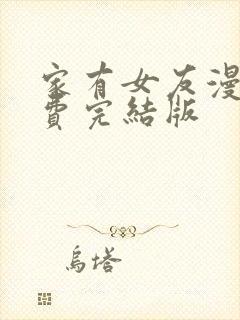 家有女友漫
費完結版
烏塔